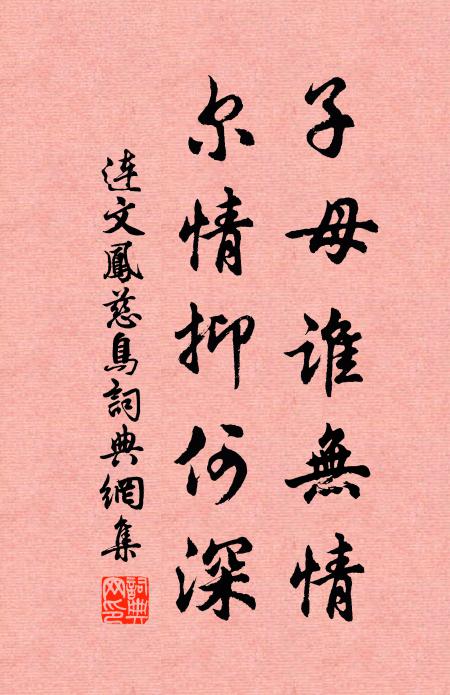 子母谁無情
尔情抑何深
連文鳳慈鳥詞典網集
詞典網印